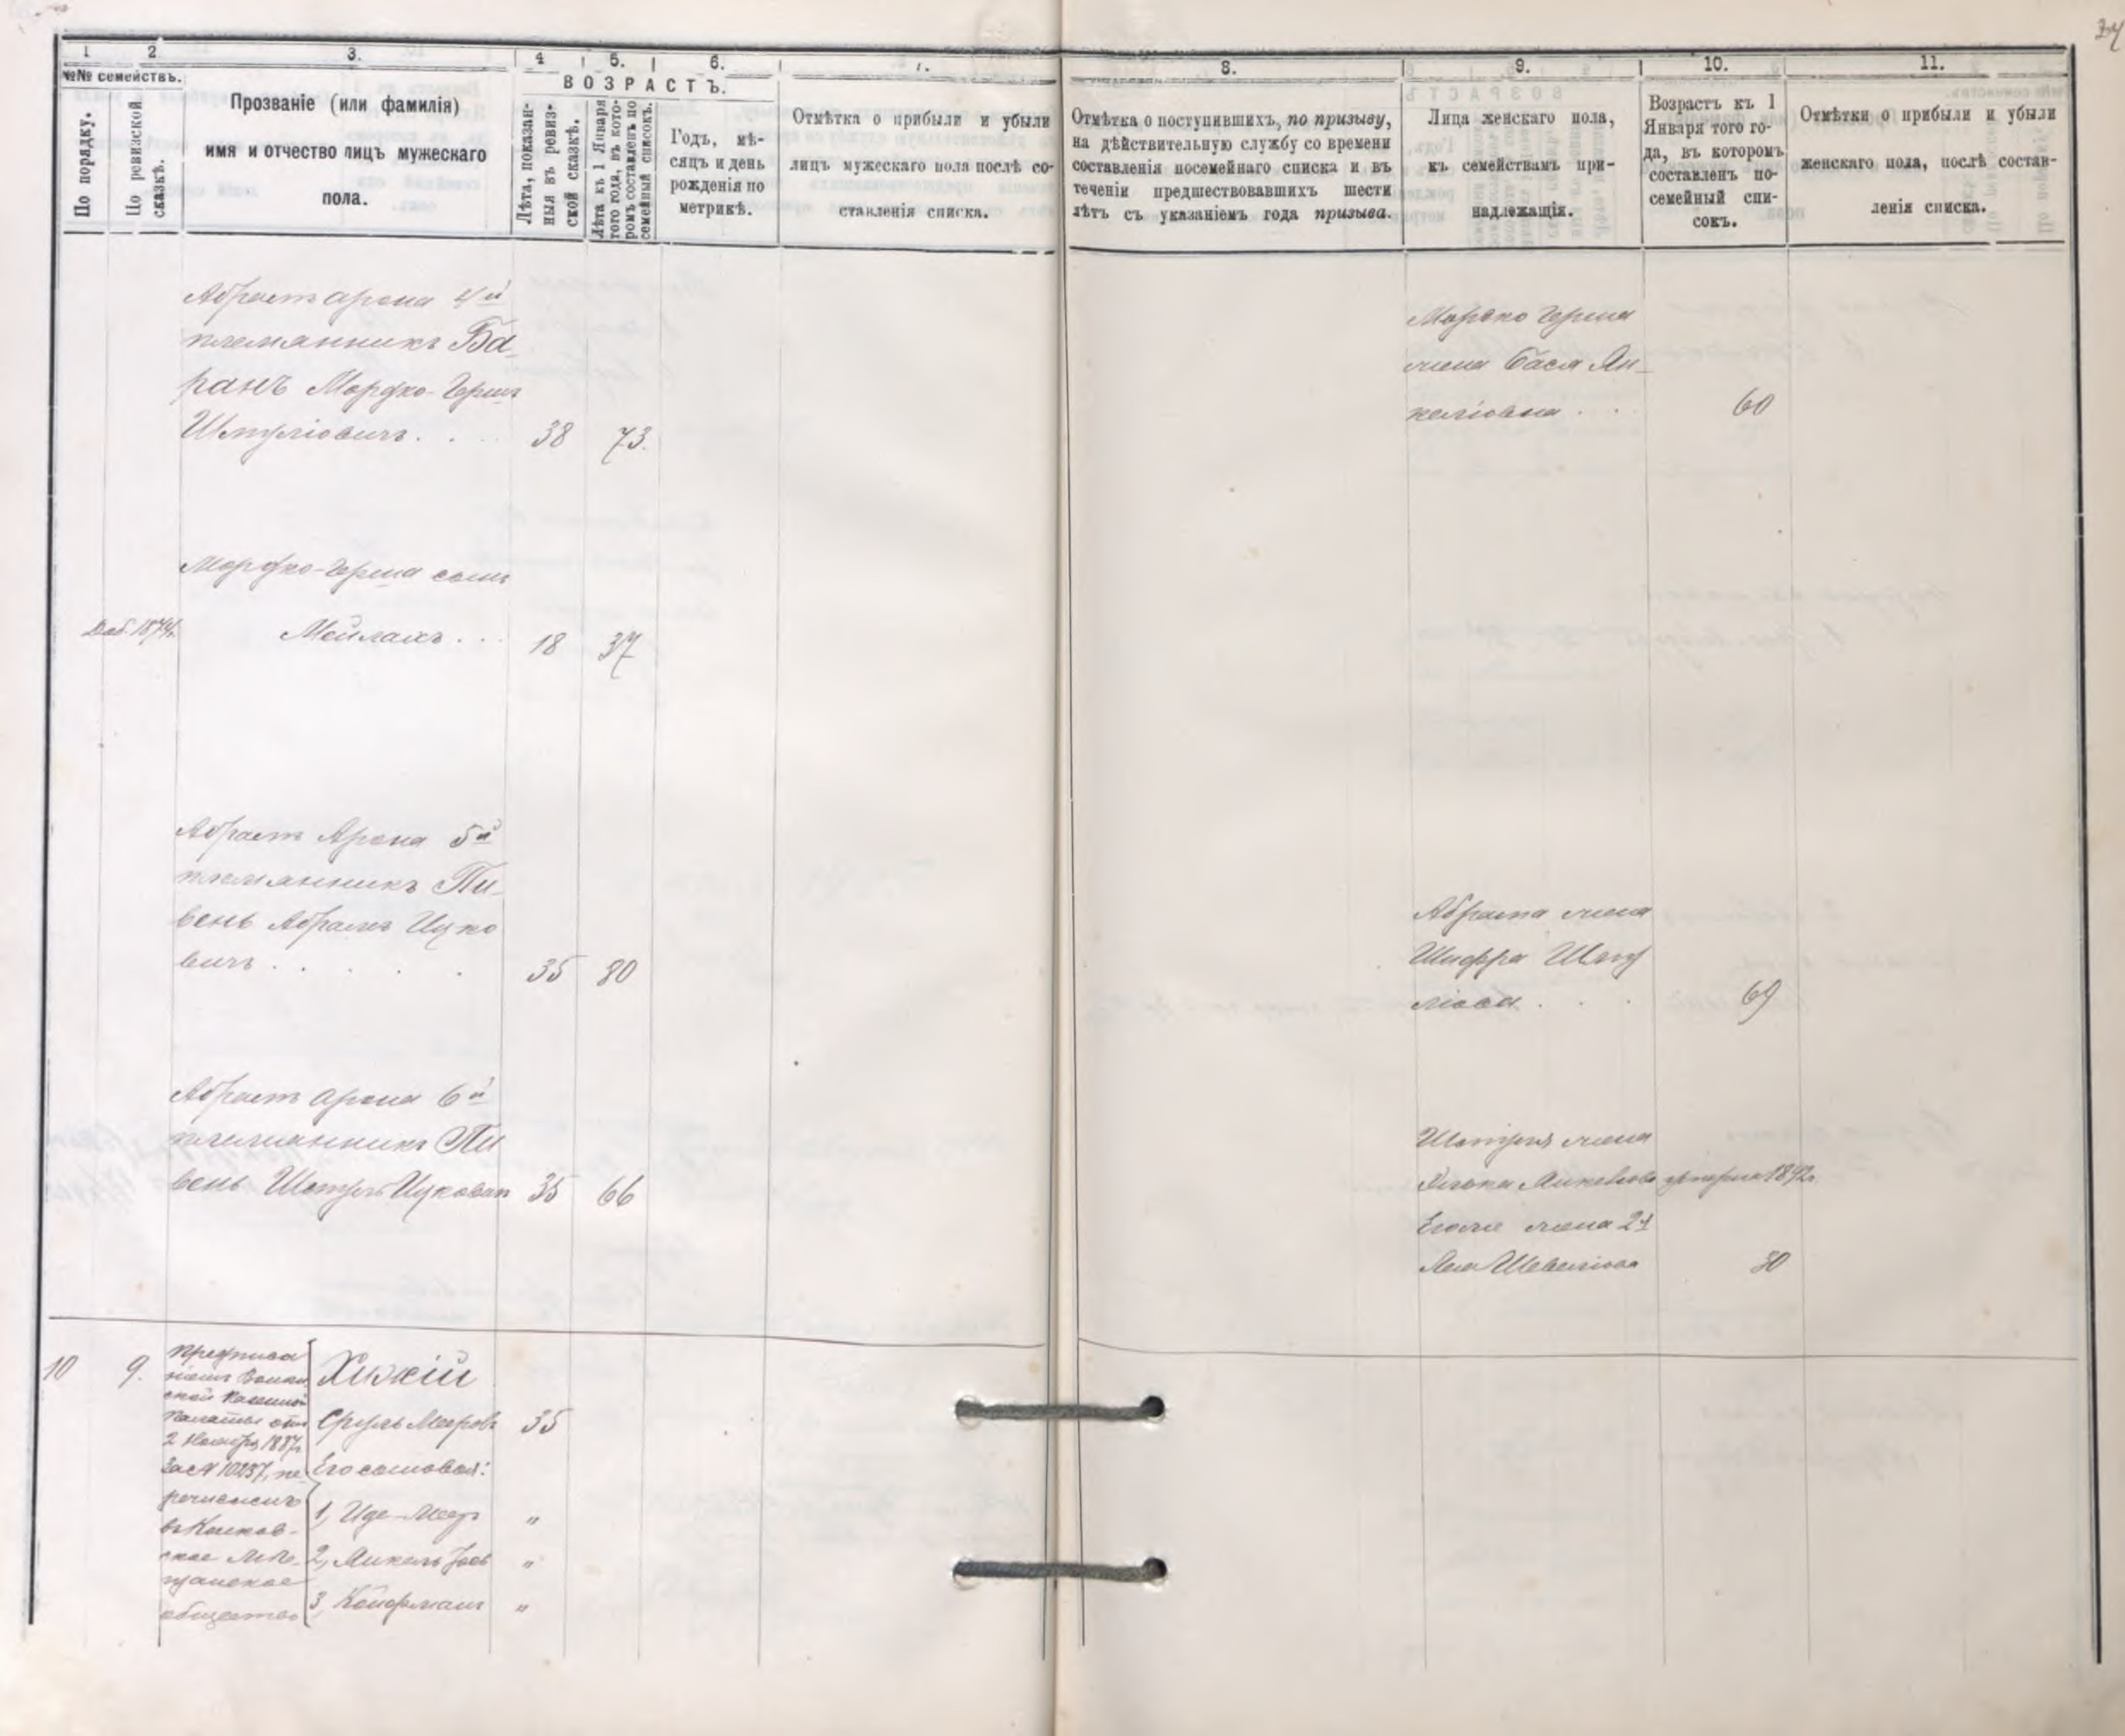 34
1
2
3.
4
5.
6.
7.
8.
9.
10.
11.
№№ семействъ.
По порядку.
По ревизской
сказкѣ.
Прозваніе (или фамилія)
имя и отчество лицъ мужескаго
пола.
ВОЗРАСТЪ.
Лѣта, показан-
ныя въ ревиз-
ской сказкѣ.
Лѣта къ 1 Января
того года, въ кото-
ромъ составленъ по
семейный списокъ.
Годъ, мѣ-
сяцъ и день
рожденія по
метрикѣ.
Отмѣтка о прибыли и убыли
лицъ мужескаго пола послѣ со-
ставленія списка.
Отмѣтка о поступившихъ, по призыву,
на дѣйствительную службу со времени
составленія посемейнаго списка и въ
теченіи предшествовавшихъ шести
лѣтъ съ указаніемъ года призыва.
Лица женскаго пола,
къ семействамъ при-
надлежащія.
Возрастъ къ 1
Января того го-
да, въ которомъ
составленъ по-
семейный спи-
сокъ.
Отмѣтки о прибыли и убыли
женскаго пола, послѣ состав-
ленія списка.
Арона 4й
племянникъ Ба-
ранъ Мордко-Герш
Шмуліовичъ . . . 38 73.
Мордко Герша
жена Бася Ян-
келіовна . . 60
Мордко-Герша сынъ
Доб. 1874г. Мейлахъ . . . 18 37
Арона 5й
племянникъ Пи-
вень Абрамъ Ицко
вичъ . . . . . 35 80
Абрама жена
Шифра Шму
ліова . . . 69
Арона 6й
племянникъ Пи
вень Шмуль Ицковичъ 35 66
Шмуля жена
умерла 1892г.
Его же жена 2я
Лея 30
10 9.
Предписа
ніемъ Волын
ской Казенной
Палаты отъ
2 Ноября 1887г.
за № 10237, пе
речисленъ
въ Колков-
ское мѣ-
щанское
общество
Хижій
Сруль Мееровъ 35
Его сыновья:
1, Иде-Меер "
2, Янкель Іось "
3, Койфманъ "